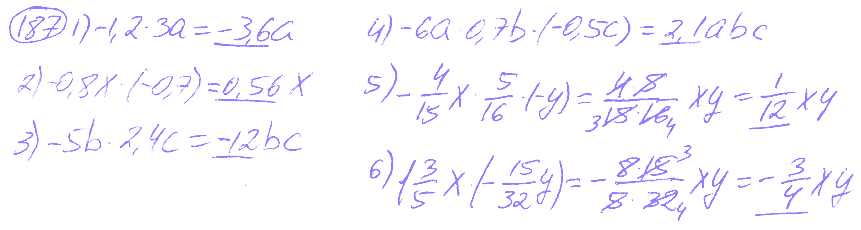 187 1) -1,2·3a = -3,6a
2) -0,8x·(-0,7) = 0,56x
3) -5b·2,4c = -12bc
4) -6a·0,7b·(-0,5c) = 2,1abc
5) -4/15x·5/16·(-y) = 4·5/15·16 3 4 xy = 1/12xy
6) 1 3/5x·(-15/32y) = -8·15 3/5·32 4 xy = -3/4xy